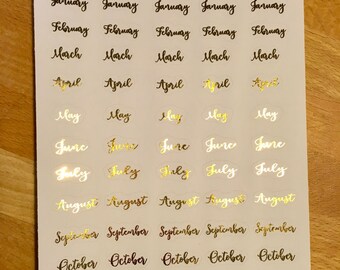 January January January January January
February February February February February
March March March March March
April April April April April
May May May May May
June June June June June
July July July July July
August August August August August
September September September September September
October October October October October